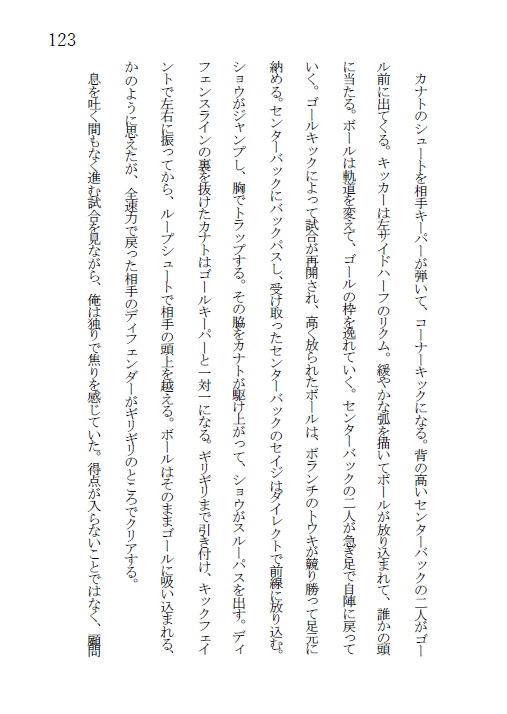 123
　カナトのシュートを相手キーパーが弾いて、コーナーキックになる。背の高いセンターバックの二人がゴー
ル前に出てくる。キッカーは左サイドハーフのリクム。緩やかな弧を描いてボールが放り込まれて、誰かの頭
に当たる。ボールは軌道を変えて、ゴールの枠を逸れていく。センターバックの二人が急ぎ足で自陣に戻って
いく。ゴールキックによって試合が再開され、高く放られたボールは、ボランチのトウキが競り勝って足元に
納める。センターバックにバックパスし、受け取ったセンターバックのセイジはダイレクトで前線に放り込む。
ショウがジャンプし、胸でトラップする。その脇をカナトが駆け上がって、ショウがスルーパスを出す。ディ
フェンスラインの裏を抜けたカナトはゴールキーパーと一対一になる。ギリギリまで引き付け、キックフェイ
ントで左右に振ってから、ループシュートで相手の頭上を越える。ボールはそのままゴールに吸い込まれる、
かのように思えたが、全速力で戻った相手のディフェンダーがギリギリのところでクリアする。
　息を吐く間もなく進む試合を見ながら、俺は独りで焦りを感じていた。得点が入らないことではなく、顧問